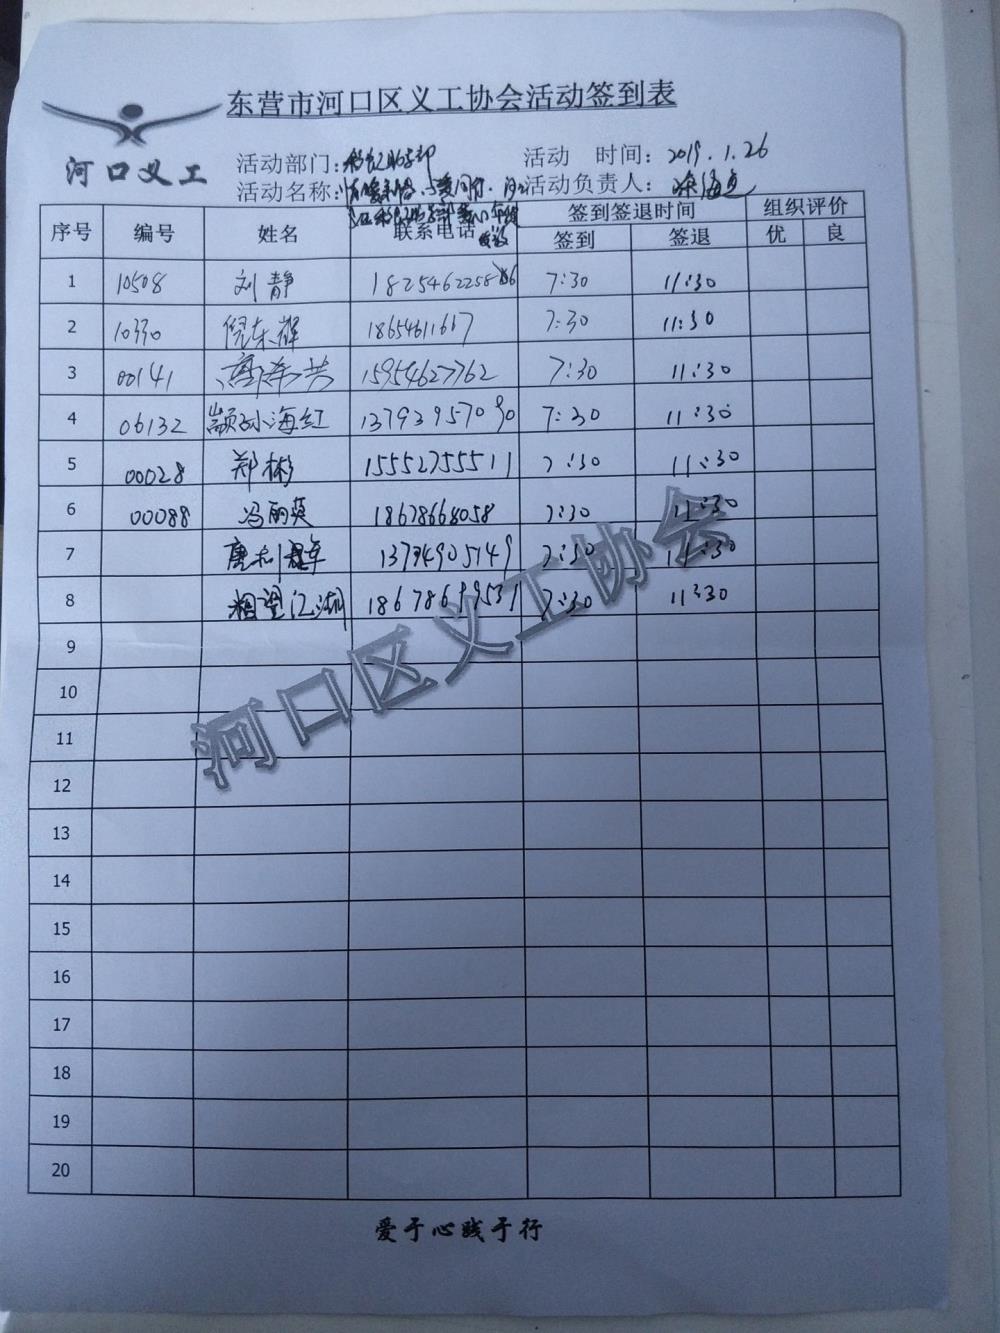 东营市河口区义工协会活动签到表
河口义工
活动部门: 活动 时间: 2019.1.26
活动名称: 活动负责人:
序号 编号 姓名 联系电话 签到签退时间 组织评价
签到 签退 优 良
1 10508 刘静 18254622586 7:30 11:30
2 10330 倪东辉 18654611667 7:30 11:30
3 00141 15954627762 7:30 11:30
4 06132 颛孙海红 13793957090 7:30 11:30
5 00028 郑彬 15552755511 7:30 11:30
6 00088 冯丽英 18678668058 7:30 11:30
7 唐利军 7:30 11:30
8 相望江湖 18678699531 7:30 11:30
9
10
11
12
13
14
15
16
17
18
19
20
河口区义工协会
爱于心践于行